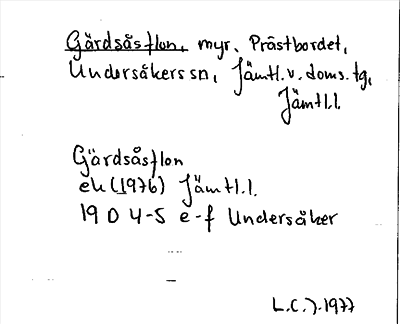 Gärdsåsflon, myr, Prästbordet,
Undersåkers sn, Jämtl. v. doms. tg,
Jämtl.l.
Gärdsåsflon
ek (1976) Jämtl.l.
19 D 4-5 e-f Undersåker
L.C.J. 1977